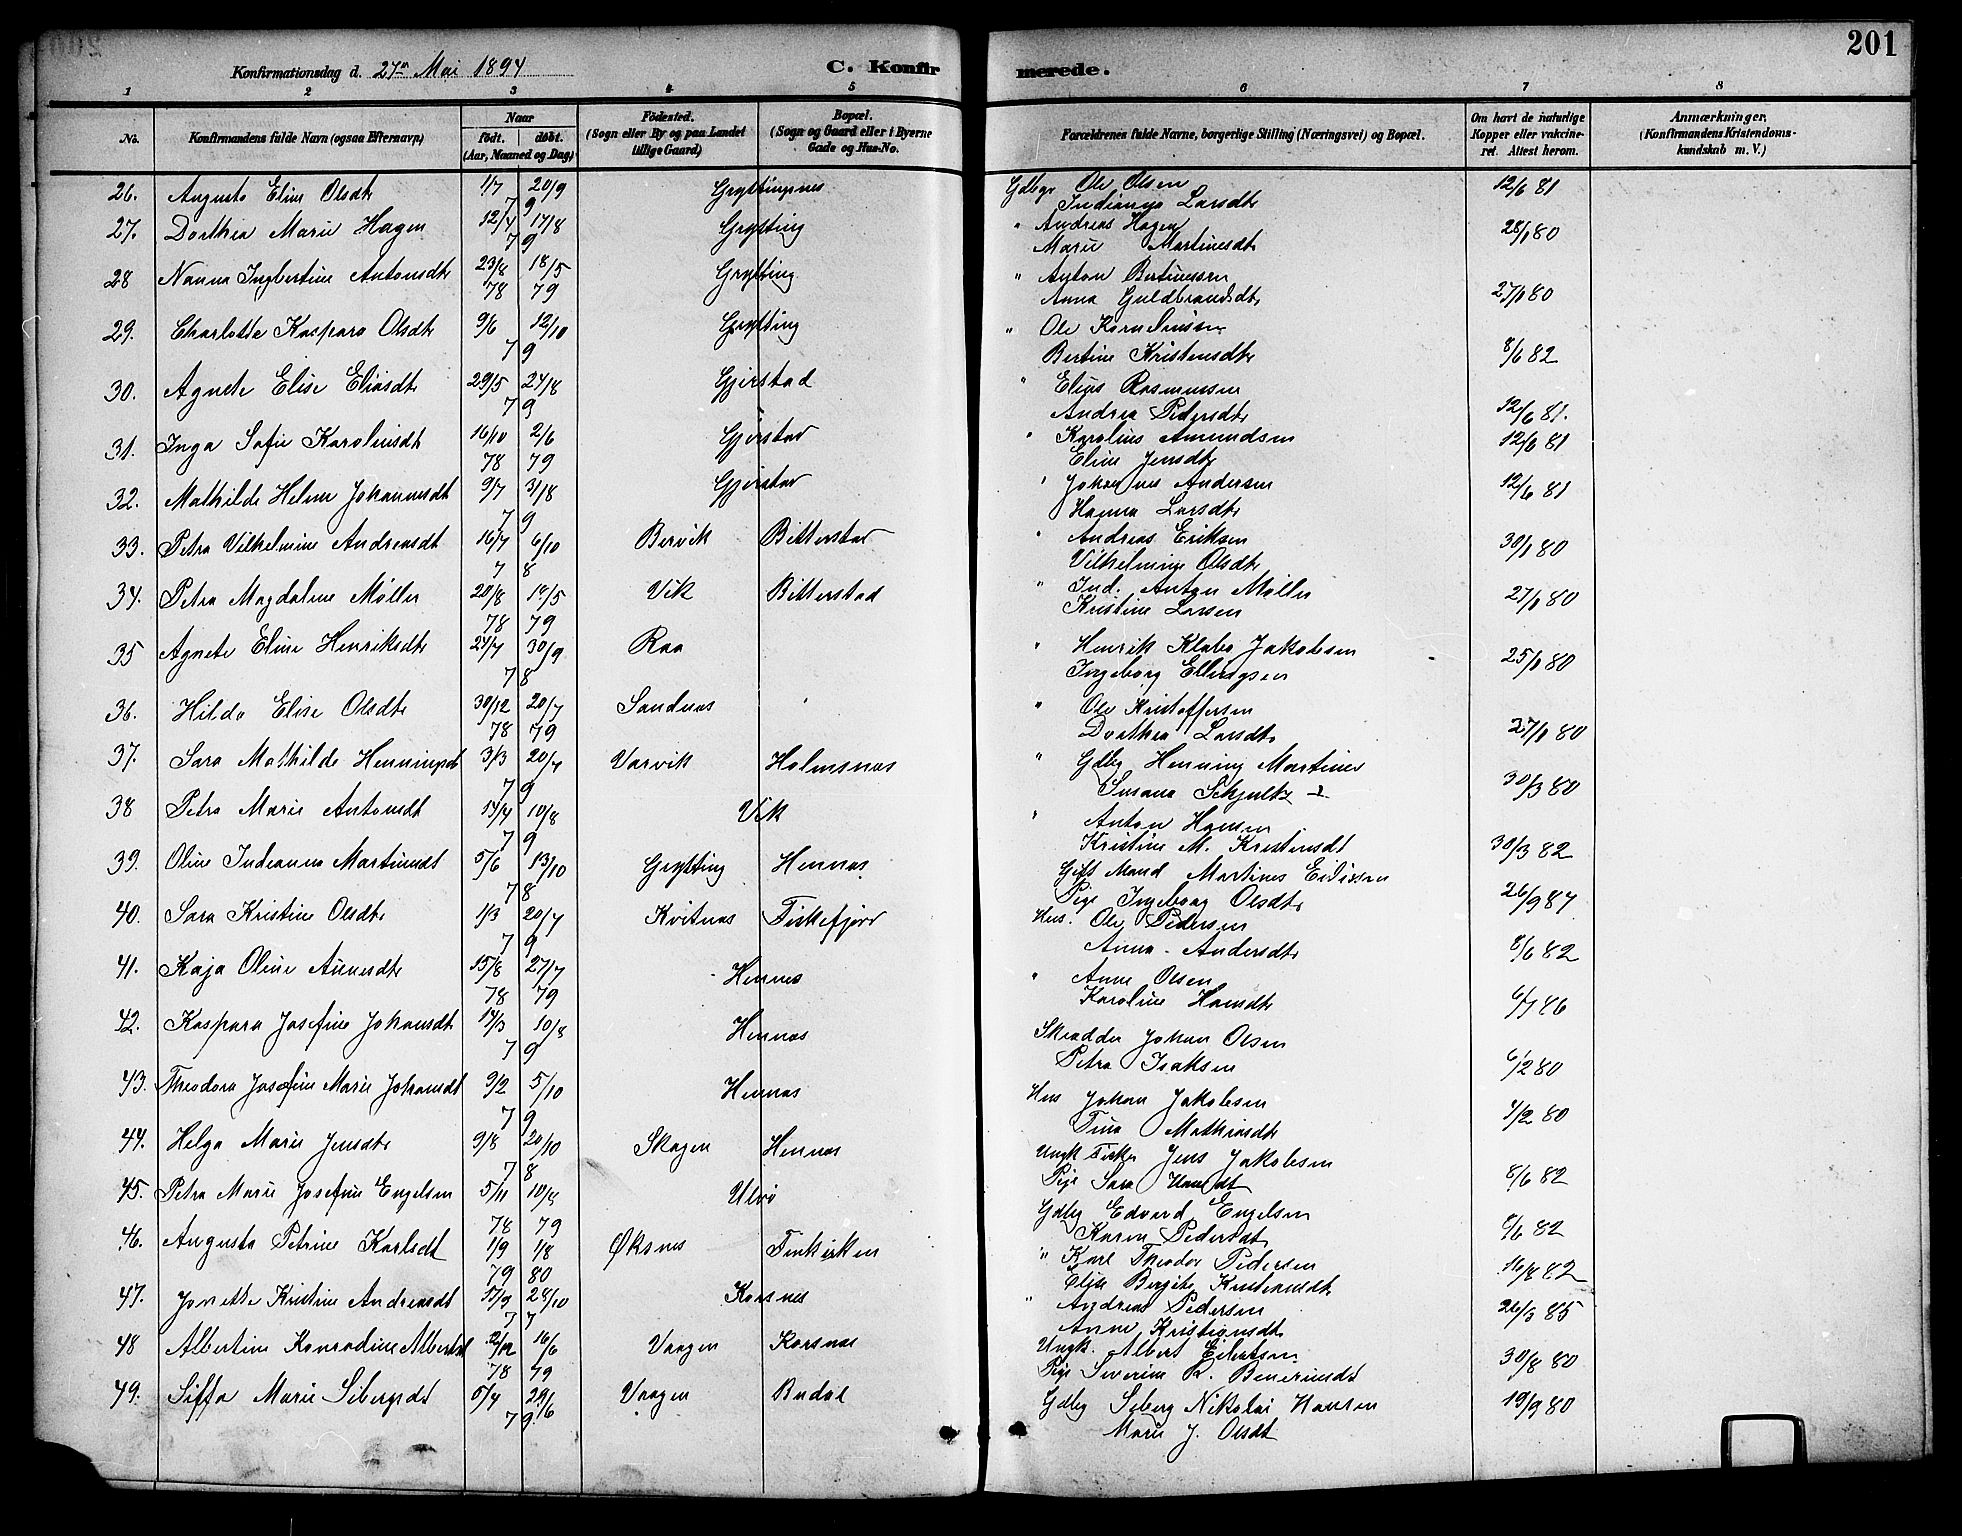 201
Konfirmationsdag d. 27de Mai 1894 C. Konfirmerede.
1 2 3 4 5 6 7 8
No. Konfirmandens fulde Navn (ogsaa Efternavn) Naar født. døbt. (Aar, Maaned og Dag) Fødested. (Sogn eller By og paa Landet tillige Gaard) Bopæl. (Sogn og Gaard eller i Byerne Gade og Hus-No. Forældrenes fulde Navne, borgerlige Stilling (Næringsvei) og Bopæl. Om havt de naturlige Kopper eller vakcineret. Attest herom. Anmærkninger. (Konfirmandens Kristendomskundskab m. V.)
26. Augusta Eline Olsdt 1/7 20/9 79 Gryttingnes Gdbgr Ole Olsen 12/6 81
Indianna Larsdtr
27. Dorthea Marie Hagen 12/4 17/8 79 Grytting " Andreas Hagen 28/1 80
Marie Martinesdt
28 Nanna Ingbertine Antonsdt 23/8 78 18/5 79 Grytting " Anton Bertinessen 27/1 80
Anna Guldbrandsdt
29. Charlotte Kaspara Olsdt 9/6 12/10 79 Grytting " Ole Korneliussen
Bertine Kristensdt 8/6 82
30. Agnete Elise Eliasdt 29/5 24/8 79 Gjerstad " Elias Rasmussen
Andrea Pedersdt 12/6 81.
31. Inga Sofie Karoliusdt 16/10 78 2/6 79 Gjerstad " Karolius Amundsen 12/6 81
Eline Jensdt
32. Mathilde Helene Johannesdt 9/7 31/8 79 Gjerstad " Johannes Andersen 12/6 81
Hanna Larsdt
33. Petra Vilhelmine Andreasdt 16/7 6/10 78 Bervik Bitterstad " Andreas Eriksen 30/1 80
Vilhelmine Olsdt
34. Petra Magdalene Møller 20/8 78 18/5 79 Vik Bitterstad " Ind. Anton Møller 27/1 80
Kristine Larsen
35 Agnete Eline Henriksdt 24/7 30/9 78 Raa " Henrik Klabo Jakobsen 25/1 80
Ingeborg Ellingsen
36. Hilda Elise Olsdt 30/12 78 20/7 79 Sandnes " Ole Kristoffersen
Dorthea Larsdt 27/1 80
37. Sara Mathilde Henningsdt 3/3 20/7 79 Varvik Holmsnes " Gdbg Henning Martines
Susana Schjultz 30/3 80
38 Petra Marie Antonsdt 14/4 10/8 79 Vik " Anton Hansen
Kristine M. Kristensdt 30/3 82
39. Oline Indianna Martinesdt 5/6 13/10 78 Grytting Hennes Gift Mand Martines Edissen
Pige Ingeborg Olsdt 26/9 87
40. Sara Kristine Olsdt 1/3 20/7 79 Kvitnes Fiskefjord Hus. Ole Pedersen
Anna Andersdt 8/6 82
41. Kaja Oline Arnesdt 15/8 78 27/7 79 Hennes " Arne Olsen
Karoline Hansdt 6/7 86
42. Kaspara Josefine Johansdt 14/3 10/8 79 Hennes Skrædder Johan Olsen
Petra Isaksen 6/2 80
43. Theodora Josefine Marie Johansdt 9/2 5/10 79 Hennes Hus Johan Jakobsen
Tina Mathiasdt 4/2 80
44. Helga Marie Jensdt 9/8 20/10 78 Skagen Hennes Ungk Fisker Jens Jakobsen
Pige Sara Hansdt 8/6 82
45. Petra Marie Josefine Engelsen 5/11 78 10/8 79 Ulvø Gdbg Edvard Engelsen
Karen Pedersdt 8/6 82
46. Augusta Petrine Karlsdt 1/9 79 1/8 80 Øksnes Finkirken " Karl Theodor Pedersen
Elise Bergite Kristensdt 16/8 82
47. Jonette Kristine Andreasdt 17/9 28/10 77 Korsnes " Andreas Pedersen 26/3 85
Anne Kristiansdt
48 Albertine Konradine Albertsdt 12/12 78 16/6 79 Vaagen Korsnes Ungk. Albert Eilertsen
Pige Severine R. 30/8 80
49. Siffa Marie Sibergsdt 5/4 29/6 79. Vaagen Budal Gdbg Siberg Nikolai Hansen 19/9 80
Marie J. Olsdt